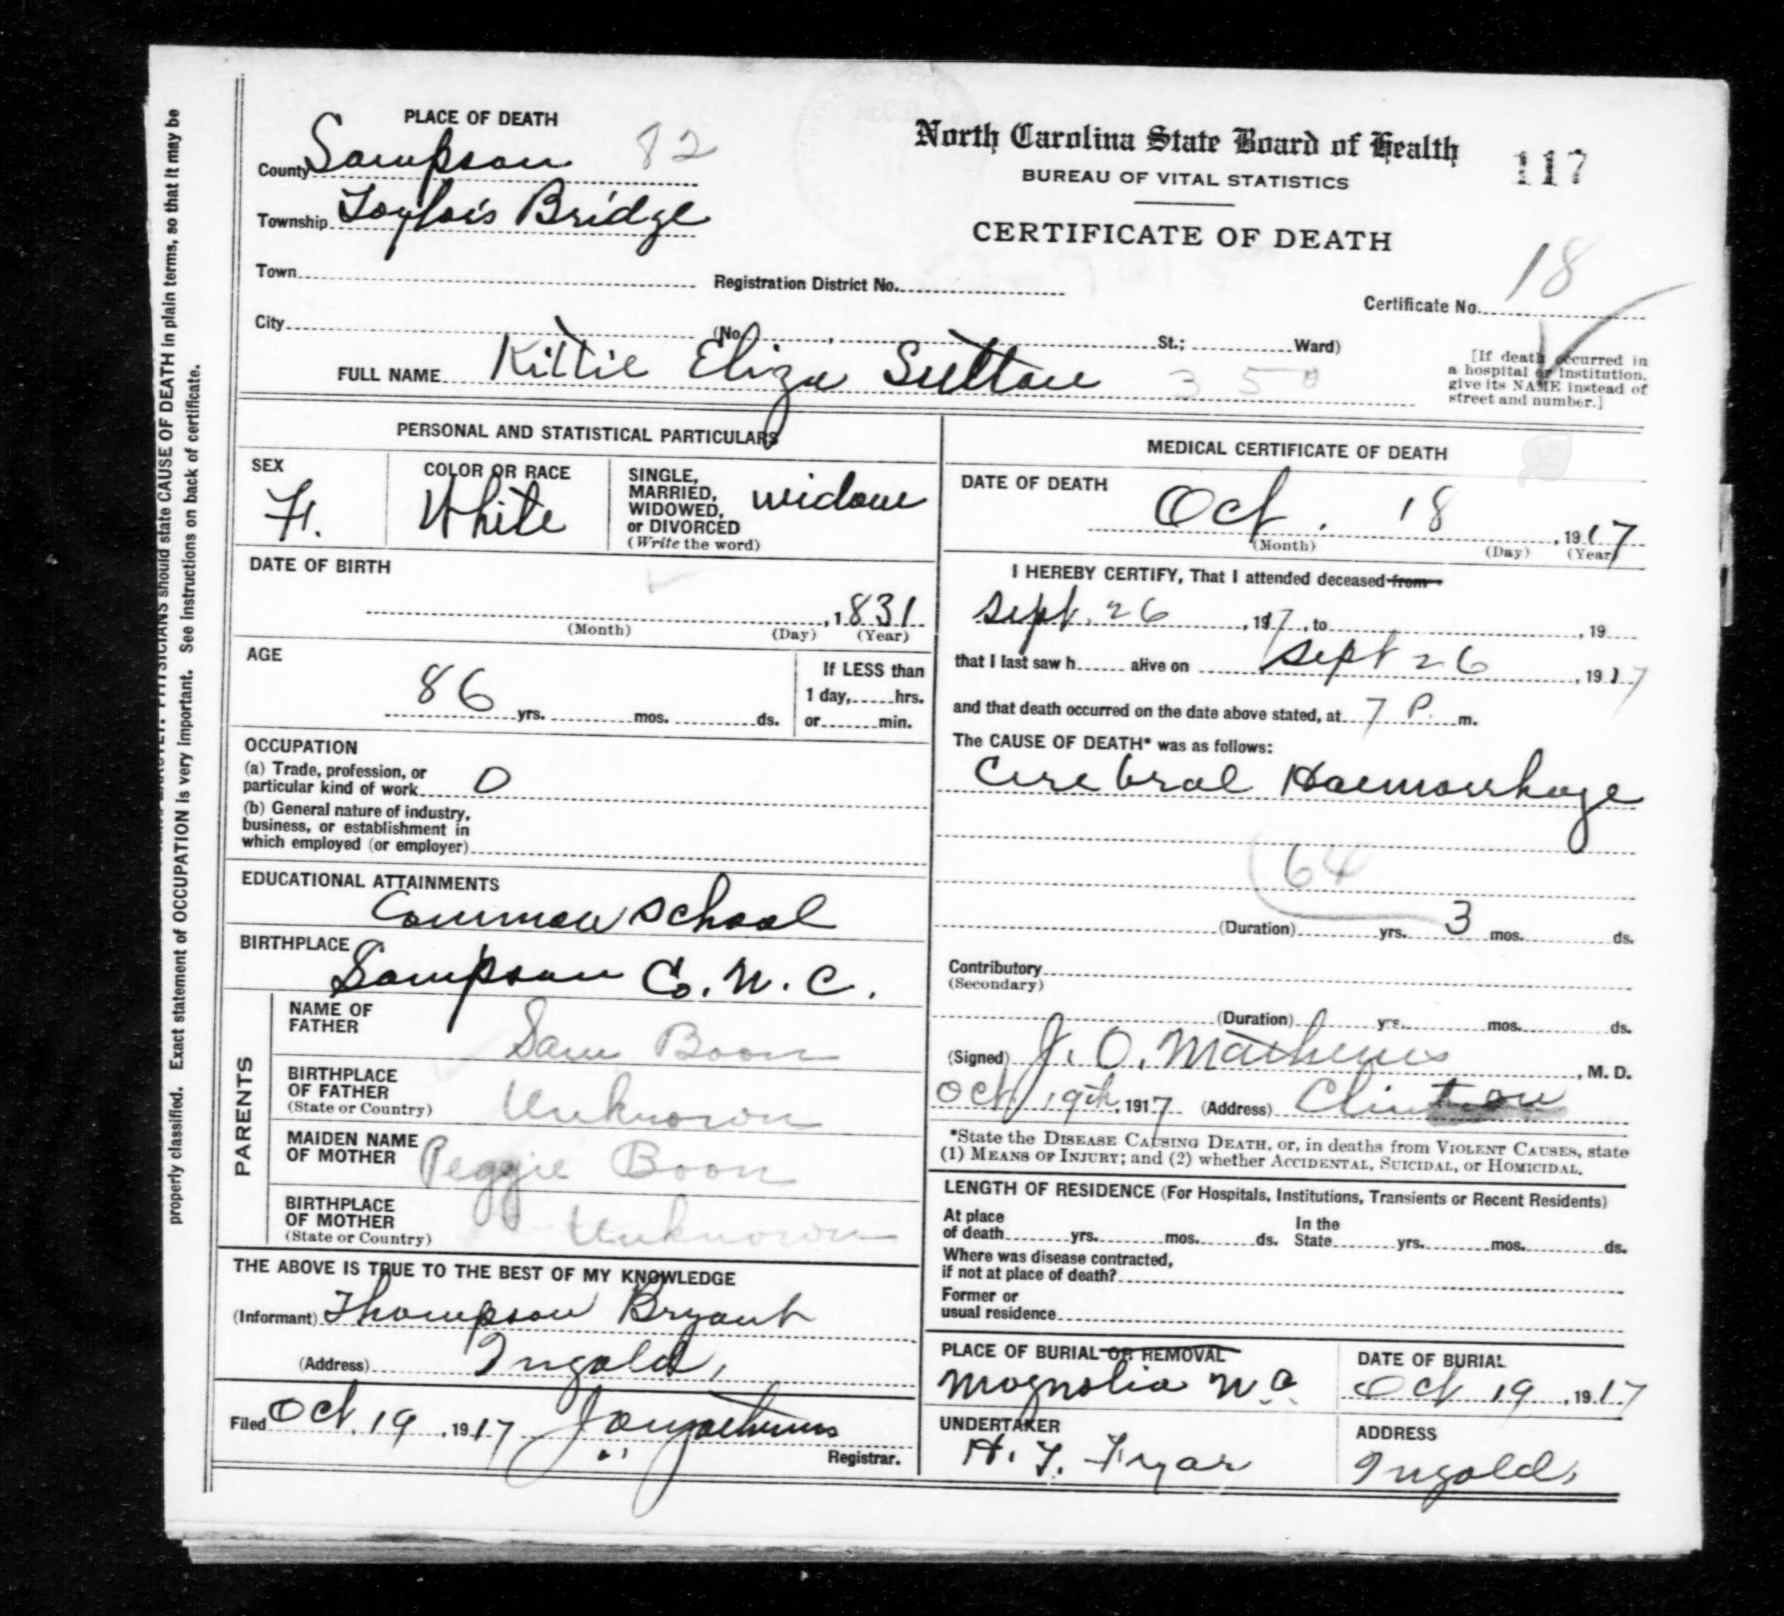 PLACE OF DEATH
County Sampson 82
Township Taylors Bridge
Town
City
North Carolina State Board of Health
117
BUREAU OF VITAL STATISTICS
CERTIFICATE OF DEATH
Registration District No.
Certificate No. 18
(No. , St.; Ward)
[If death occurred in
a hospital or institution,
give its NAME instead of
street and number.]
FULL NAME Kittie Eliza Sutton 350
PERSONAL AND STATISTICAL PARTICULARS
SEX
F.
COLOR OR RACE
White
SINGLE,
MARRIED,
WIDOWED,
or DIVORCED
(Write the word)
widow
DATE OF BIRTH
, 1831
(Month) (Day) (Year)
AGE
86 yrs. mos. ds.
If LESS than
1 day, hrs.
or min.
OCCUPATION
(a) Trade, profession, or
particular kind of work 0
(b) General nature of industry,
business, or establishment in
which employed (or employer)
EDUCATIONAL ATTAINMENTS
Common School
BIRTHPLACE
Sampson Co. N. C.
PARENTS
NAME OF
FATHER
Sam Boon
BIRTHPLACE
OF FATHER
(State or Country)
Unknown
MAIDEN NAME
OF MOTHER
Peggie Boon
BIRTHPLACE
OF MOTHER
(State or Country)
Unknown
THE ABOVE IS TRUE TO THE BEST OF MY KNOWLEDGE
(Informant) Thompson Bryant
(Address) Ingold,
Filed Oct. 19, 1917
Registrar.
MEDICAL CERTIFICATE OF DEATH
DATE OF DEATH
Oct. 18, 1917
(Month) (Day) (Year)
I HEREBY CERTIFY, That I attended deceased from
Sept. 26, 1917, to , 19
that I last saw h alive on Sept 26, 1917
and that death occurred on the date above stated, at 7 P. m.
The CAUSE OF DEATH* was as follows:
Cerebral Haemorrhage
64
(Duration) yrs. 3 mos. ds.
Contributory
(Secondary)
(Duration) yrs. mos. ds.
(Signed) J. O. Mathews, M. D.
Oct 19th, 1917 (Address) Clinton
*State the DISEASE CAUSING DEATH, or, in deaths from VIOLENT CAUSES, state
(1) MEANS OF INJURY; and (2) whether ACCIDENTAL, SUICIDAL, or HOMICIDAL.
LENGTH OF RESIDENCE (For Hospitals, Institutions, Transients or Recent Residents)
At place
of death yrs. mos. ds.
In the
State yrs. mos. ds.
Where was disease contracted,
if not at place of death?
Former or
usual residence
PLACE OF BURIAL OR REMOVAL
Magnolia N C
DATE OF BURIAL
Oct 19, 1917
UNDERTAKER
ADDRESS
Ingold,
PHYSICIANS should state CAUSE OF DEATH in plain terms, so that it may be
properly classified. Exact statement of OCCUPATION is very important. See instructions on back of certificate.